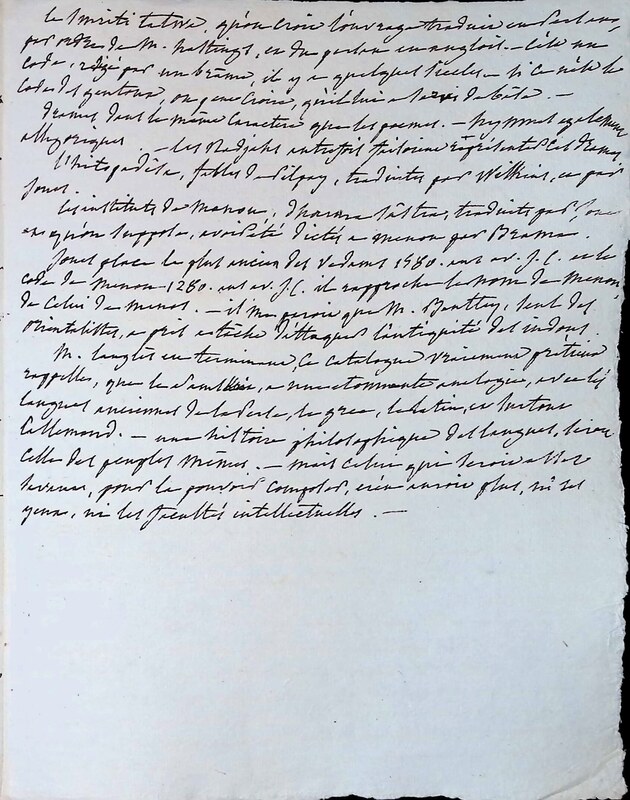 le Smriti tatwa, qu'on croit l'ouvrage traduit en Persan,
par ordre de M. hastings, et du persan en anglois. – C'est un
code, rédigé par un brame, il y a quelques siecles. – si ce n'est le
Code des gentoux, on peut croire, qu'il lui a servi de base. –
Drames dans le même caractere que les poemes. – également
allegoriques. – les Radjahs autrefois faisoient représenter ces drames.
L'hitopadésa, fables de Pilpay, traduites par Wilkins, et par
Jones.
les instituts de Menou, dharma sastra, traduits par Jones
et qu'on suppose, avoir été dictés a menou par Brama.
Jones place le plus ancien des vedams 1580. ans av. J. C. et le
code de Menou 1280. ans av. J. C. il rapproche le nom de Menou,
de celui de minos. – il me paroit que M. Bentley, seul des
orientalistes, a pris a tâche d'attaquer l'antiquité des indous.
M. langlès en terminant, ce catalogue vraiment prétieux
rappelle, que le samskrit, a une etonnante analogie, avec les
langues anciennes de la Perse, le grec, le latin, et surtout
l'allemand. – une histoire philosophique des langues, seroit
celle des peuples mêmes. – mais celui qui seroit assez
savant, pour la pouvoir composer, n'en auroit plus, ni les
yeux, ni les facultés intellectuelles. –